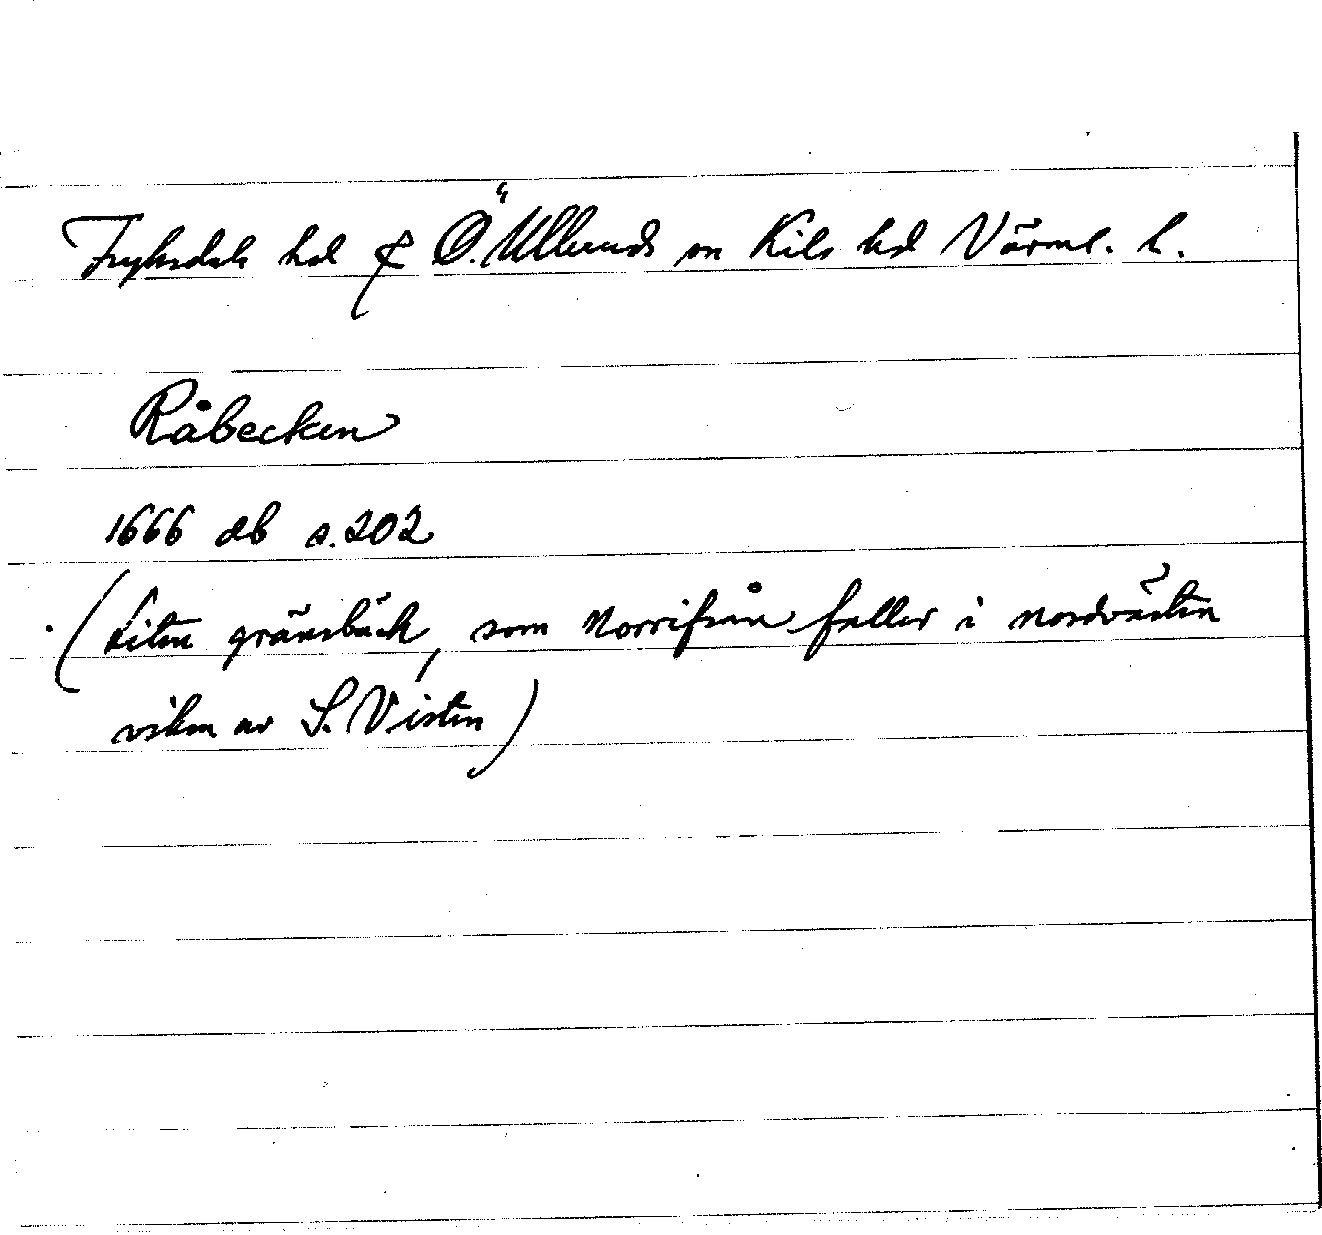 Fryksdals hd & Ö. Ullerud sn Kils hd Värml. l.
Råbecken
1666 db s. 202
(Liten gränsbäck, som norrifrån faller i nordvästra
viken av S. Visten)